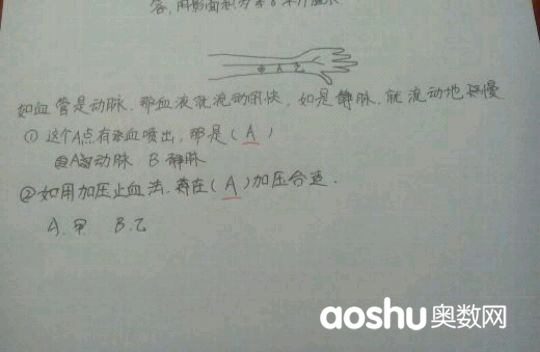 答,阴影面积为
甲 A 乙
如血管是动脉,那血液就流动的快,如是静脉,就流动地缓慢
① 这个A点有血喷出,那是(A)
A 动脉 B 静脉
②如用加压止血法,将在(A)加压合适.
A.甲 B.乙
aoshu奥数网